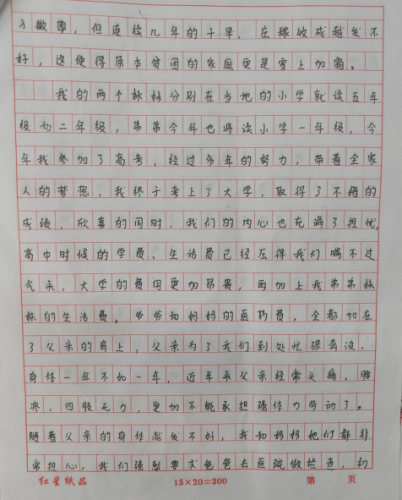 入微薄，但连续几年的干旱，庄稼收成越发不
好，这使得原本贫困的家庭更是雪上加霜。
我的两个妹妹分别在当地的小学就读五年
级和二年级，弟弟今年也将读小学一年级，今
年我参加了高考，经过多年的努力，带着全家
人的梦想，我终于考上了大学，取得了不错的
成绩，欣喜的同时，我们的内心也充满了担忧，
高中时候的学费、生活费已经压得我们喘不过
气来，大学的费用更加昂贵，再加上我弟弟妹
妹的生活费，爷爷和妈妈的医药费，全都加在
了父亲的身上，父亲为了我们到处忙碌奔波，
身体一年不如一年，近年来父亲经常头痛，
疼，四肢无力，更加不能承担强体力劳动了。
随着父亲的身体越发不好，我和妈妈他们都非
常担心，我们强烈要求爸爸去医院做检查，初
红星纸品 15×20=300 第 页